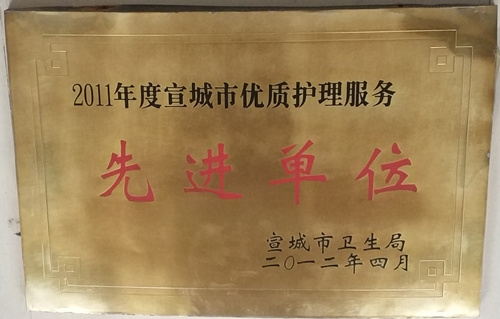 2011年度宣城市优质护理服务
先进单位
宣城市卫生局
二〇一二年四月